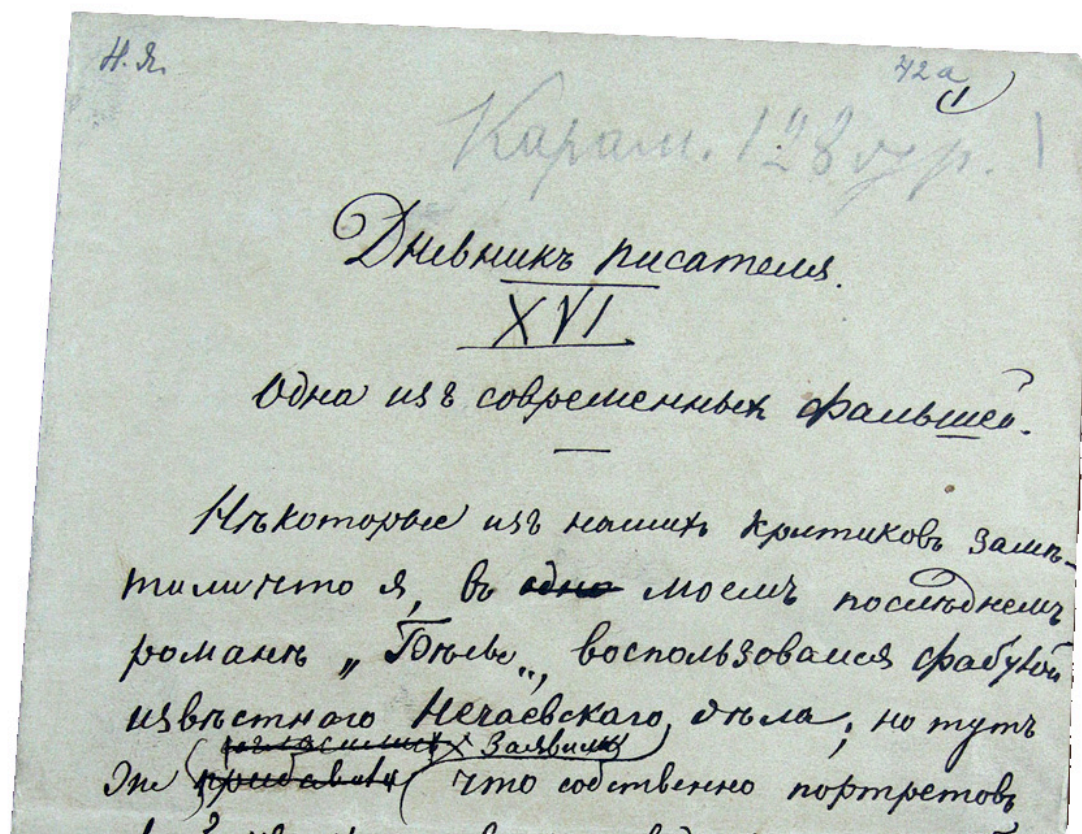 Н. Я.
42а
1
Карам. 128 стр. 1
Дневникъ писателя.
XVI.
Одна изъ современныхъ фальшей.
Нѣкоторые изъ нашихъ критиковъ замѣ-
тили что я, въ одно моемъ послѣднемъ
романѣ „Бѣсы“, воспользовался фабулой
извѣстнаго Нечаевскаго дѣла; но тутъ
согласились заявили
же прибавили что собственно портретовъ